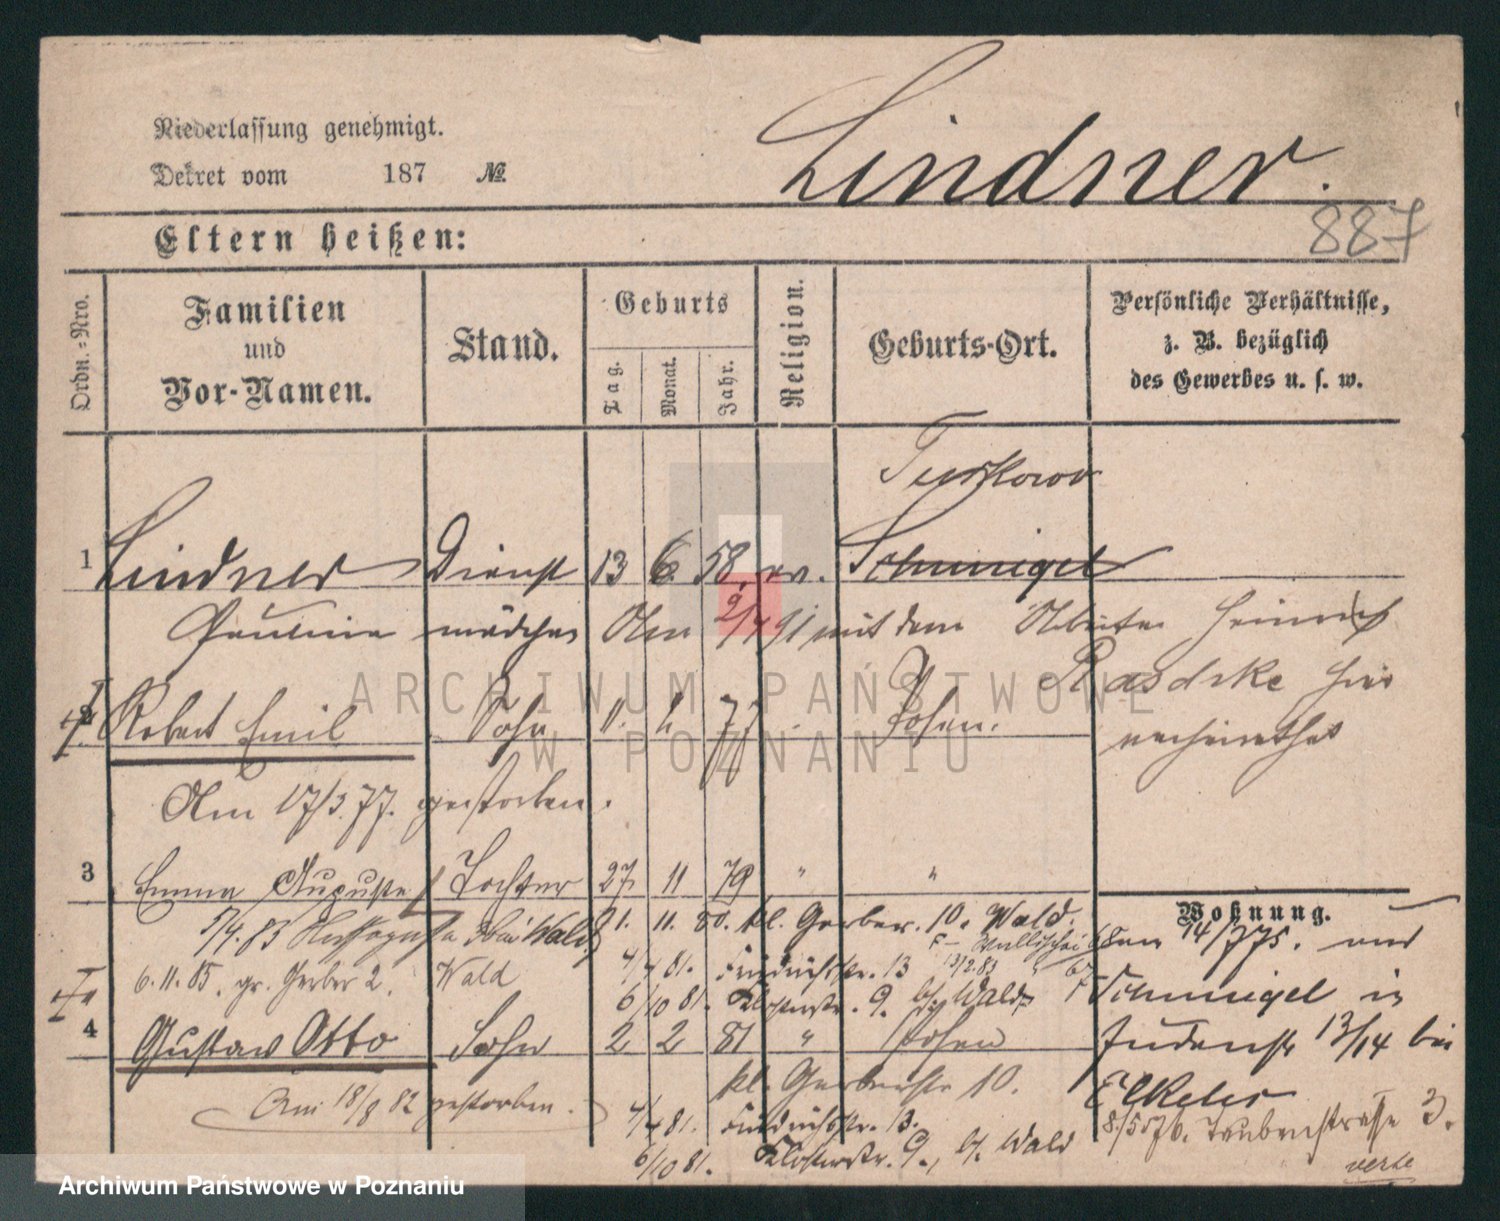 Niederlassung genehmigt.
Dekret vom 187 №.
Lindner.
887
Eltern heißen:
Ordn.-Nro.
Familien
und
Vor-Namen.
Stand.
Geburts
Tag.
Monat.
Jahr.
Religion.
Geburts-Ort.
Persönliche Verhältnisse,
z. B. bezüglich
des Gewerbes u. s. w.
Turkowo
1 Lindner Dienst 13 6 58. ev. Schmiegel
Pauline mädchen Am 9/4 91 mit dem Arbeiter Heinrich
Raschke hier
verheirathet
2 Robert Emil Sohn 11. 2. 77 Posen.
Am 17/3.77. gestorben.
3 Emma Auguste Tochter 27 11 79 " "
5/4.83 bei Wald 21. 11. 80. kl. Gerber. 10. Wald.
4/4 81. Friedrichstr. 13 13/2.83
6.11.85. gr. Gerber 2. Wald
6/10 81. Klosterstr. 9. bei Wald
Wohnung.
am 14/7 75. aus
Schmiegel in
Judenstr 13/14 bei
8/5 76. Taubenstrasse 3.
verte
4 Gustav Otto Sohn 2 2 81 " Posen
Am 18/8 82 gestorben.
kl. Gerberstr 10.
4/4 81. Friedrichstr. 13.
6/10 81. Klosterstr. 9., b. Wald
ARCHIWUM PAŃSTWOWE
W POZNANIU
Archiwum Państwowe w Poznaniu